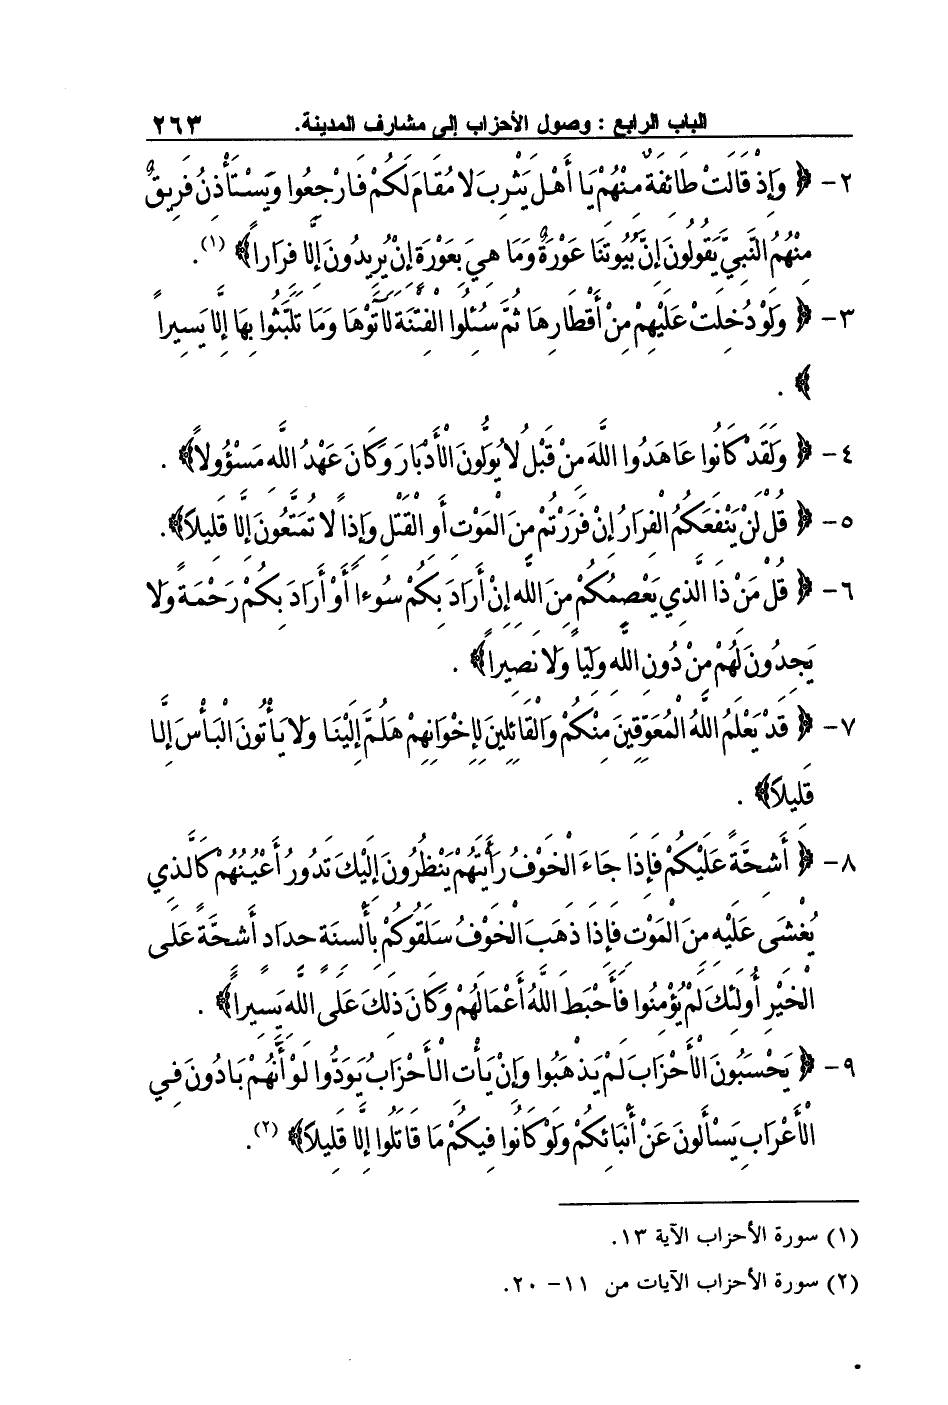 الباب الرابع : وصول الأحزاب إلى مشارف المدينة. ٢٦٣
٢- ﴿ وَإِذْ قَالَتْ طَائِفَةٌ مِنْهُمْ يَا أَهْلَ يَثْرِبَ لا مُقَامَ لَكُمْ فَارْجِعُوا وَيَسْتَأْذِنُ فَرِيقٌ
مِنْهُمُ النَّبِيَّ يَقُولُونَ إِنَّ بُيُوتَنَا عَوْرَةٌ وَمَا هِيَ بِعَوْرَةٍ إِنْ يُرِيدُونَ إِلَّا فِرَاراً﴾ (١).
٣- ﴿ وَلَوْ دُخِلَتْ عَلَيْهِمْ مِنْ أَقْطَارِهَا ثُمَّ سُئِلُوا الْفِتْنَةَ لَآتَوْهَا وَمَا تَلَبَّثُوا بِهَا إِلَّا يَسِيراً
﴾ .
٤- ﴿ وَلَقَدْ كَانُوا عَاهَدُوا اللَّهَ مِنْ قَبْلُ لا يُوَلُّونَ الْأَدْبَارَ وَكَانَ عَهْدُ اللَّهِ مَسْؤُولاً﴾ .
٥- ﴿ قُلْ لَنْ يَنْفَعَكُمُ الْفِرَارُ إِنْ فَرَرْتُمْ مِنَ الْمَوْتِ أَوِ الْقَتْلِ وَإِذاً لا تُمَتَّعُونَ إِلَّا قَلِيلاً﴾.
٦- ﴿ قُلْ مَنْ ذَا الَّذِي يَعْصِمُكُمْ مِنَ اللَّهِ إِنْ أَرَادَ بِكُمْ سُوءاً أَوْ أَرَادَ بِكُمْ رَحْمَةً وَلا
يَجِدُونَ لَهُمْ مِنْ دُونِ اللَّهِ وَلِيّاً وَلا نَصِيراً﴾ .
٧- ﴿ قَدْ يَعْلَمُ اللَّهُ الْمُعَوِّقِينَ مِنْكُمْ وَالْقَائِلِينَ لِإِخْوَانِهِمْ هَلُمَّ إِلَيْنَا وَلا يَأْتُونَ الْبَأْسَ إِلَّا
قَلِيلاً﴾ .
٨- ﴿ أَشِحَّةً عَلَيْكُمْ فَإِذَا جَاءَ الْخَوْفُ رَأَيْتَهُمْ يَنْظُرُونَ إِلَيْكَ تَدُورُ أَعْيُنُهُمْ كَالَّذِي
يُغْشَى عَلَيْهِ مِنَ الْمَوْتِ فَإِذَا ذَهَبَ الْخَوْفُ سَلَقُوكُمْ بِأَلْسِنَةٍ حِدَادٍ أَشِحَّةً عَلَى
الْخَيْرِ أُولَئِكَ لَمْ يُؤْمِنُوا فَأَحْبَطَ اللَّهُ أَعْمَالَهُمْ وَكَانَ ذَلِكَ عَلَى اللَّهِ يَسِيراً﴾ .
٩- ﴿ يَحْسَبُونَ الْأَحْزَابَ لَمْ يَذْهَبُوا وَإِنْ يَأْتِ الْأَحْزَابُ يَوَدُّوا لَوْ أَنَّهُمْ بَادُونَ فِي
الْأَعْرَابِ يَسْأَلونَ عَنْ أَنْبَائِكُمْ وَلَوْ كَانُوا فِيكُمْ مَا قَاتَلُوا إِلَّا قَلِيلاً﴾ (٢).
(١) سورة الأحزاب الآية ١٣.
(٢) سورة الأحزاب الآيات من ١١- ٢٠.